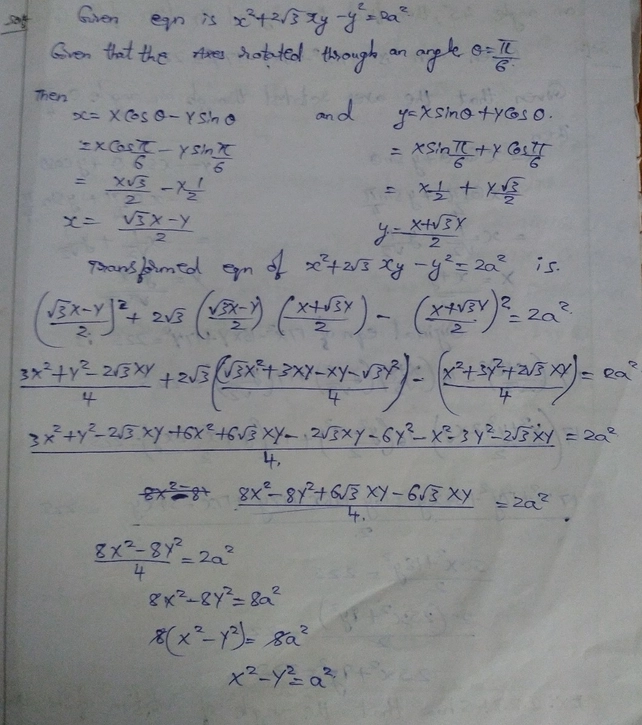 Sol
Given eqn is x²+2√3 xy-y²=2a²
Given that the Axes rotated through an angle θ=π/6.
Then
x= X Cos θ - Y Sin θ and y= X sin θ + Y Cos θ.
= X Cos π/6 - Y sin π/6 = X sin π/6 + Y Cos π/6
= X√3/2 - Y 1/2 = X 1/2 + Y √3/2
x= (√3X-Y)/2 y= (X+√3Y)/2
Transformed eqn of x²+2√3 xy-y²=2a² is.
((√3X-Y)/2)² + 2√3 ((√3X-Y)/2) ((X+√3Y)/2) - ((X+√3Y)/2)² = 2a²
(3X²+Y²-2√3XY)/4 + 2√3((√3X²+3XY-XY-√3Y²)/4) - ((X²+3Y²+2√3XY)/4) = 2a²
(3X²+Y²-2√3XY+6X²+6√3XY-2√3XY-6Y²-X²-3Y²-2√3XY)/4. = 2a²
(8X²-8Y²+6√3XY-6√3XY)/4. = 2a²
(8X²-8Y²)/4 = 2a²
8X²-8Y²=8a²
8(X²-Y²)= 8a²
X²-Y²=a²